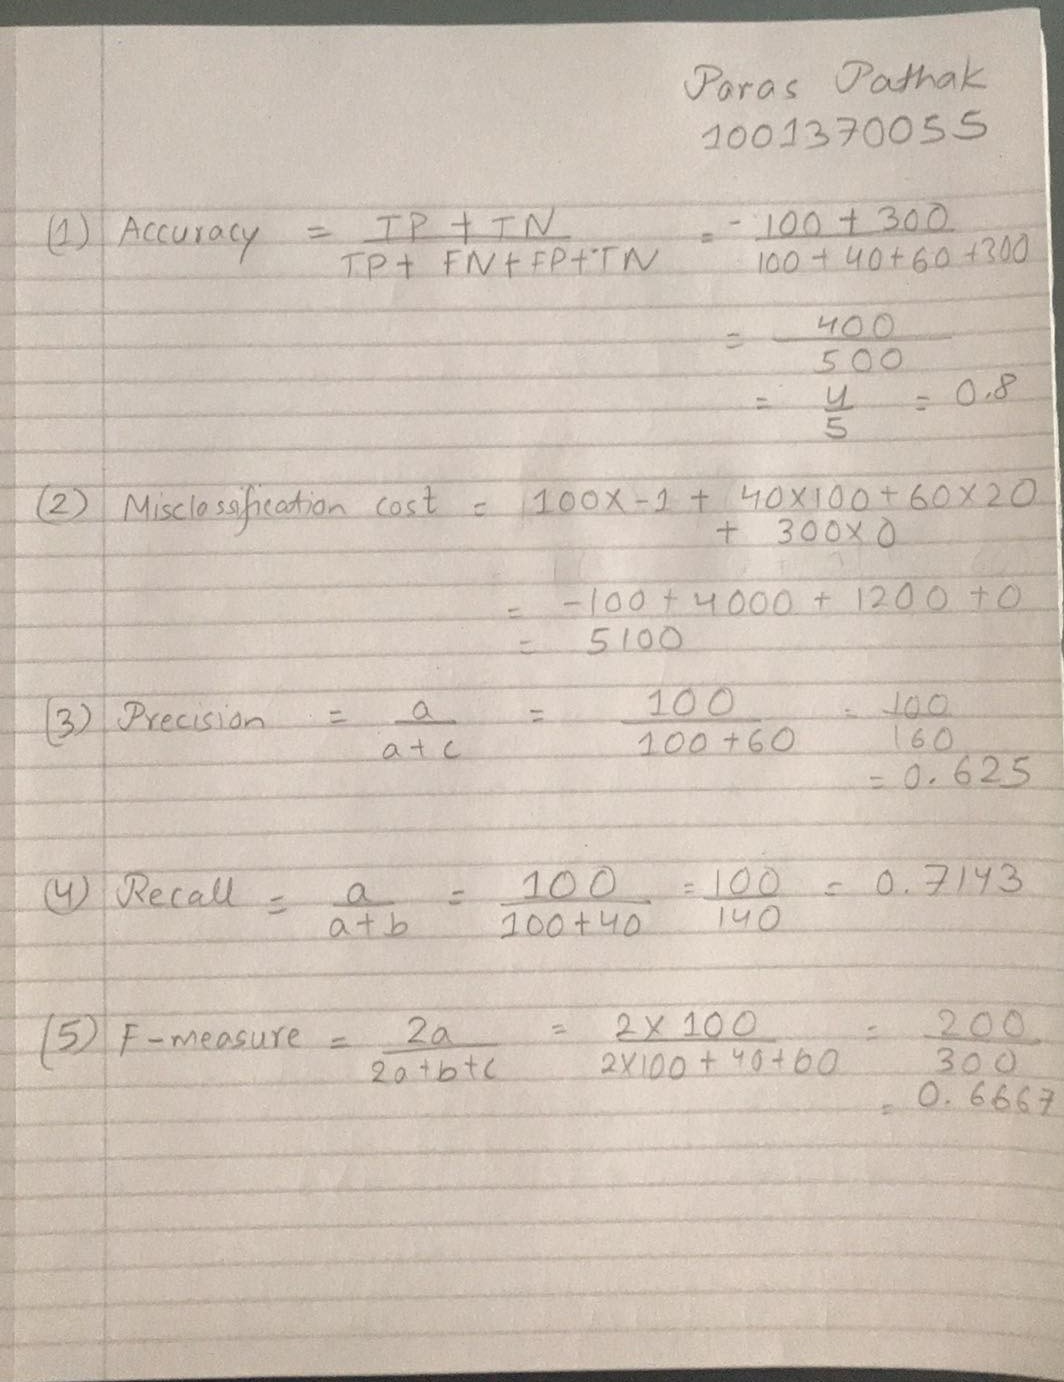 Paras Pathak
1001370055
(1) Accuracy = TP + TN / TP + FN + FP + TN = - 100 + 300 / 100 + 40 + 60 + 300
= 400 / 500
= 4 / 5 = 0.8
(2) Misclassification cost = 100 x -1 + 40 x 100 + 60 x 20
+ 300 x 0
= -100 + 4000 + 1200 + 0
= 5100
(3) Precision = a / a + c = 100 / 100 + 60 = 100 / 160
= 0.625
(4) Recall = a / a + b = 100 / 100 + 40 = 100 / 140 = 0.7143
(5) F-measure = 2a / 2a + b + c = 2 x 100 / 2 x 100 + 40 + 60 = 200 / 300
= 0.6667